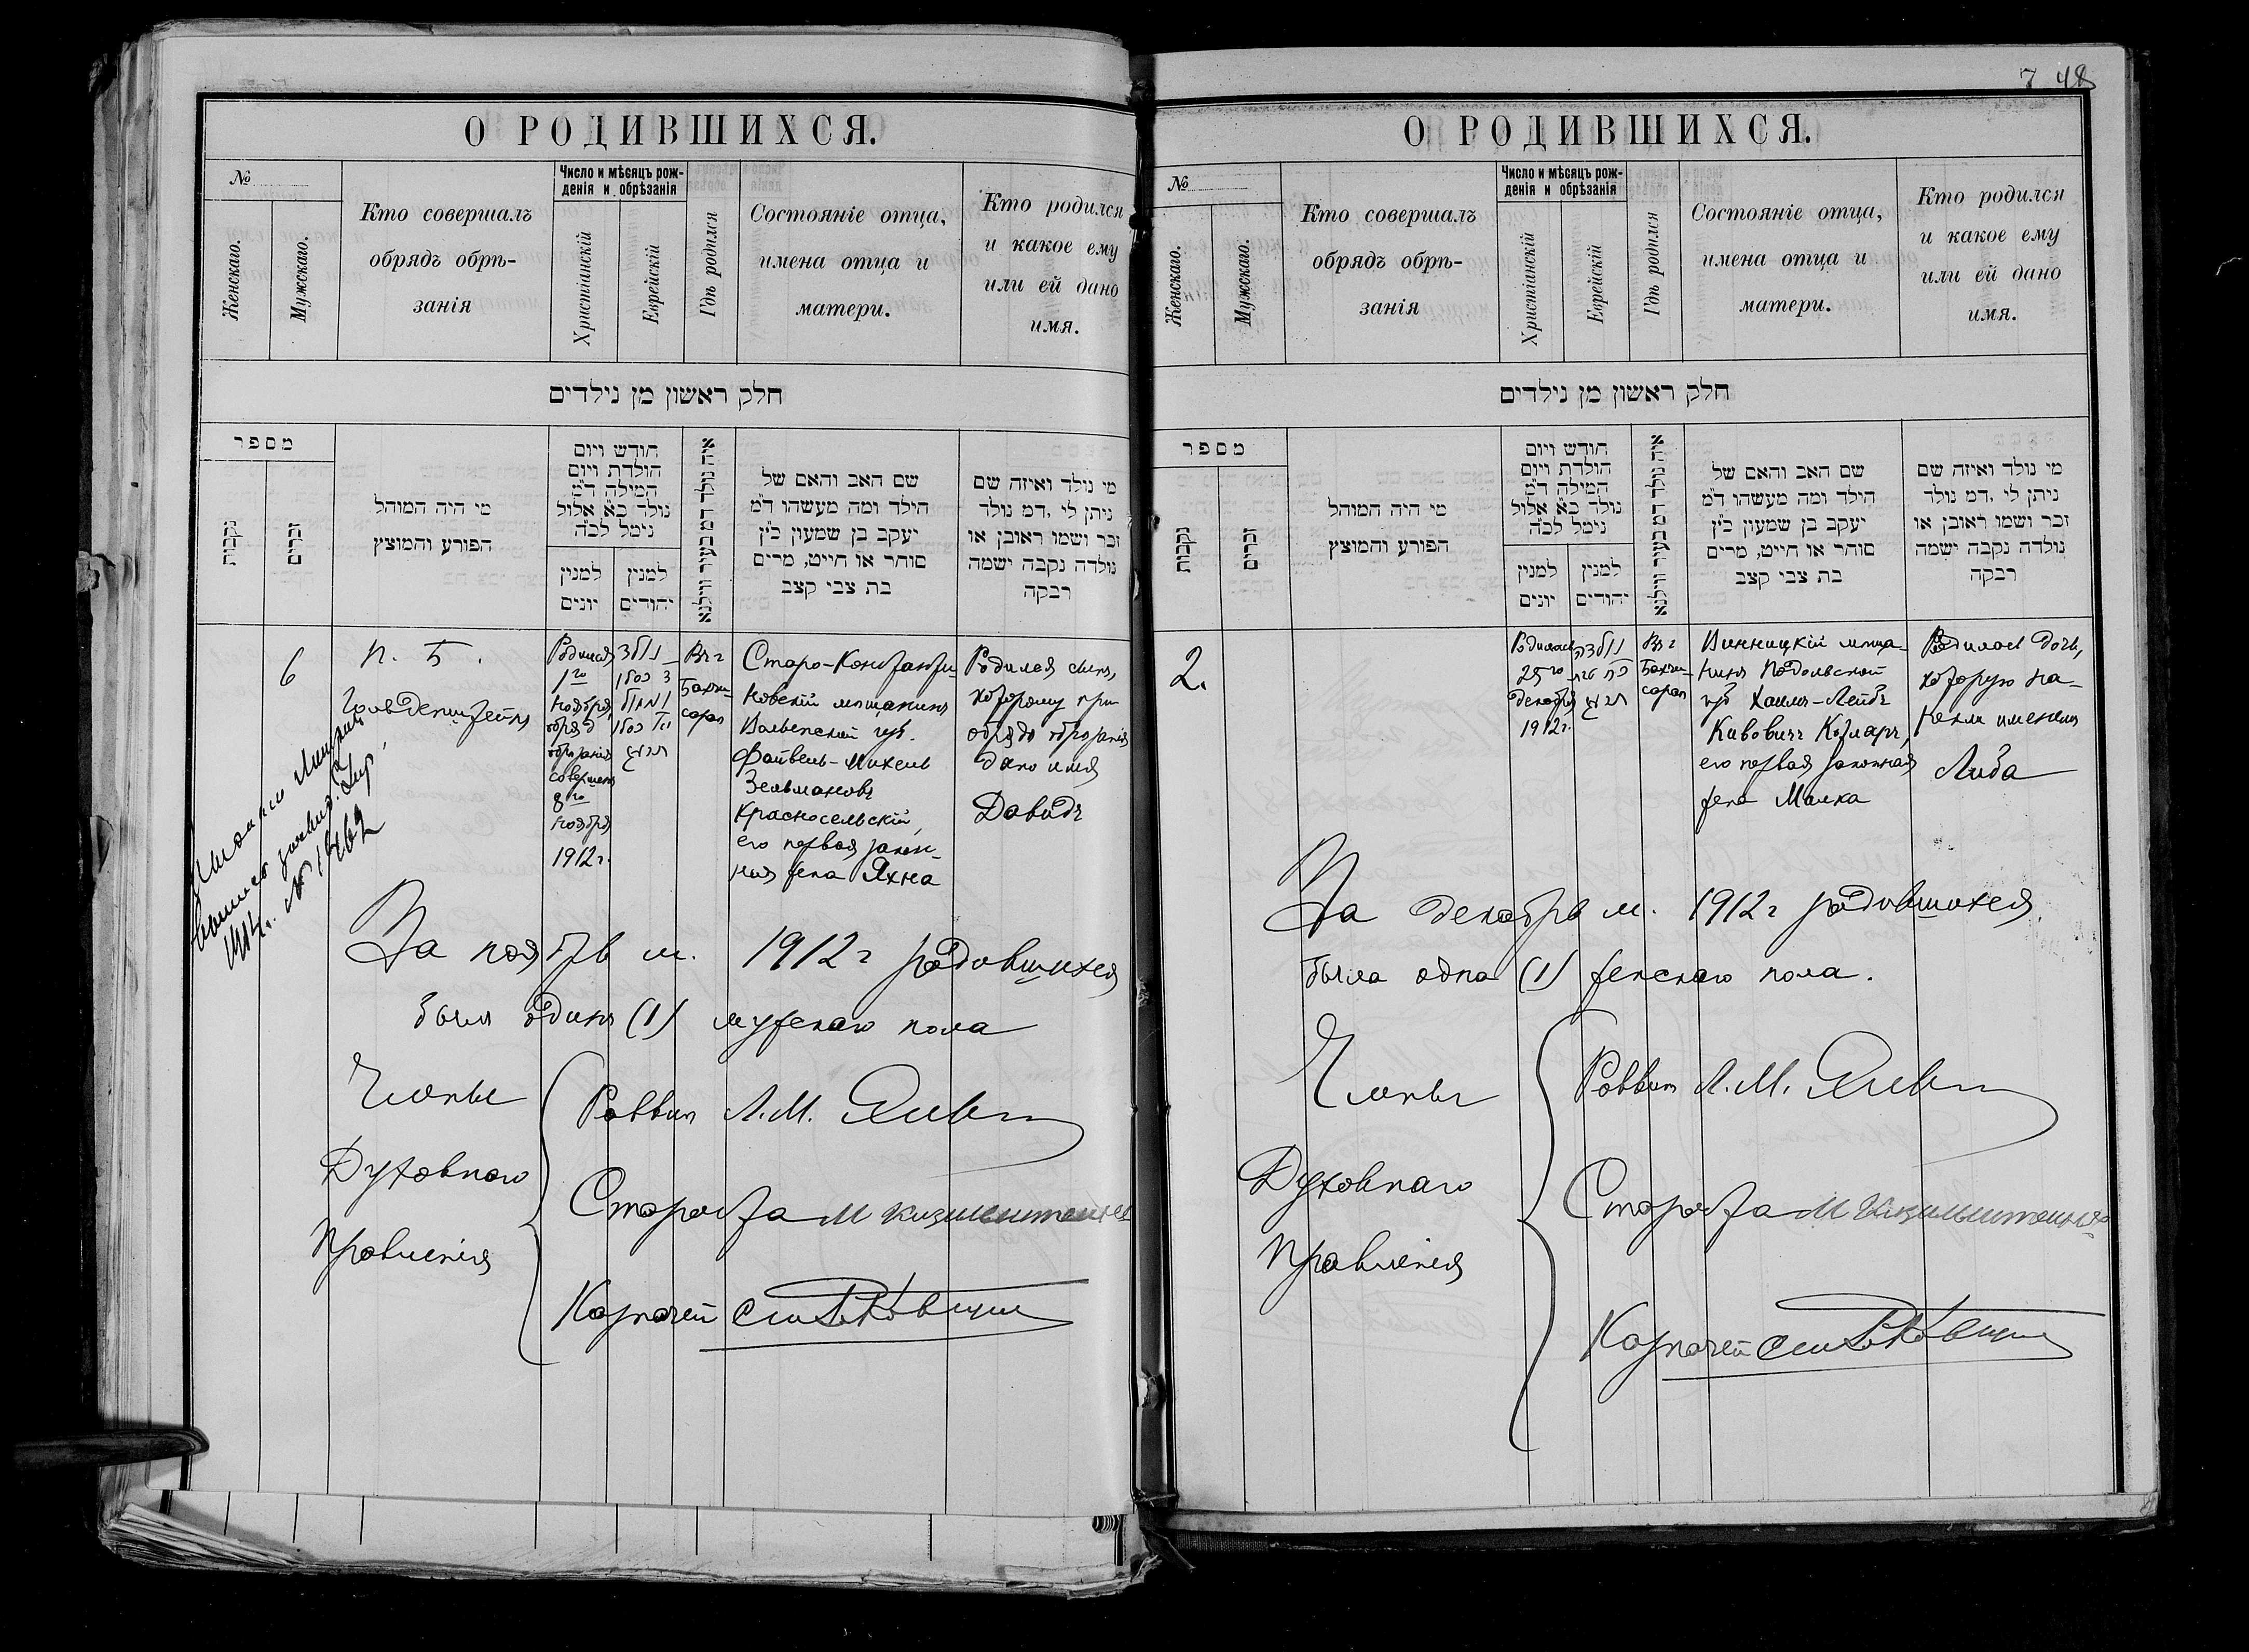 7 48
О РОДИВШИХСЯ.
№
Женскаго.
Мужскаго.
Кто совершалъ
обрядъ обрѣ-
занія
Число и мѣсяцъ рож-
денія и обрѣзанія
Христіанскій
Еврейскій
Гдѣ родился
Состояніе отца,
имена отца и
матери.
Кто родился
и какое ему
или ей дано
имя.
חלק ראשון מן נילדים
מספר
נקבות
זכרים
מי היה המוהל
הפורע והמוצץ
חודש ויום
הולדת ויום
המילה ד"מ
נולד כ"א אלול
נימל לכ"ה
למנין
יונים
למנין
יהודים
איה נולד דמ בעיר ווילנא
שם האב והאם של
הילד ומה מעשהו ד"מ
יעקב בן שמעון כ"ץ
סוחר או חייט, מרים
בת צבי קצב
מי נולד ואיזה שם
ניתן לי, דמ נולד
זכר ושמו ראובן או
נולדה נקבה ישמה
רבקה
6
П. Б.
Гольденштейнъ
Родился
1го
Ноября,
обрядъ
обрѣзанія
совершенъ
8го
Ноября
1912г.
נולד
ג כסלו
ונמול
י"א כסלו
תרעג
Въ г
Бахчи-
сарая
Старо-Константи-
новскій мѣщанинъ
Волынской губ.
Файвель-Михель
Зельмановъ
Красносельскій,
его первая закон-
ная жена Яхна
Родился сынъ,
которому при
обрядѣ обрѣзанія
дано имя
Давидъ
№ 1462
За ноябрь м. 1912г родившихся
былъ одинъ (1) мужскаго пола
Члены
Духовнаго
Правленія
Раввинъ Л.М.
Староста М Кизильштейнъ
Казначей
О РОДИВШИХСЯ.
№
Женскаго.
Мужскаго.
Кто совершалъ
обрядъ обрѣ-
занія
Число и мѣсяцъ рож-
денія и обрѣзанія
Христіанскій
Еврейскій
Гдѣ родился
Состояніе отца,
имена отца и
матери.
Кто родился
и какое ему
или ей дано
имя.
חלק ראשון מן נילדים
מספר
נקבות
זכרים
מי היה המוהל
הפורע והמוצץ
חודש ויום
הולדת ויום
המילה ד"מ
נולד כ"א אלול
נימל לכ"ה
למנין
יונים
למנין
יהודים
איה נולד דמ בעיר ווילנא
שם האב והאם של
הילד ומה מעשהו ד"מ
יעקב בן שמעון כ"ץ
סוחר או חייט, מרים
בת צבי קצב
מי נולד ואיזה שם
ניתן לי, דמ נולד
זכר ושמו ראובן או
נולדה נקבה ישמה
רבקה
2.
Родилась
25го
декабря
1912г.
נולדה
כ"ח טבת
תרעג
Въ г
Бахчи-
сарая
Винницкій мѣща-
нинъ Подольской
губ Хаимъ-Лейбъ
Кивовичъ Котляръ,
его первая законная
жена Малка
Родилась дочь,
которую на-
рекли именемъ
Либа
За декабрь м. 1912г родившихся
была одна (1) женскаго пола.
Члены
Духовнаго
Правленія
Раввинъ Л.М.
Староста М Кизильштейнъ
Казначей